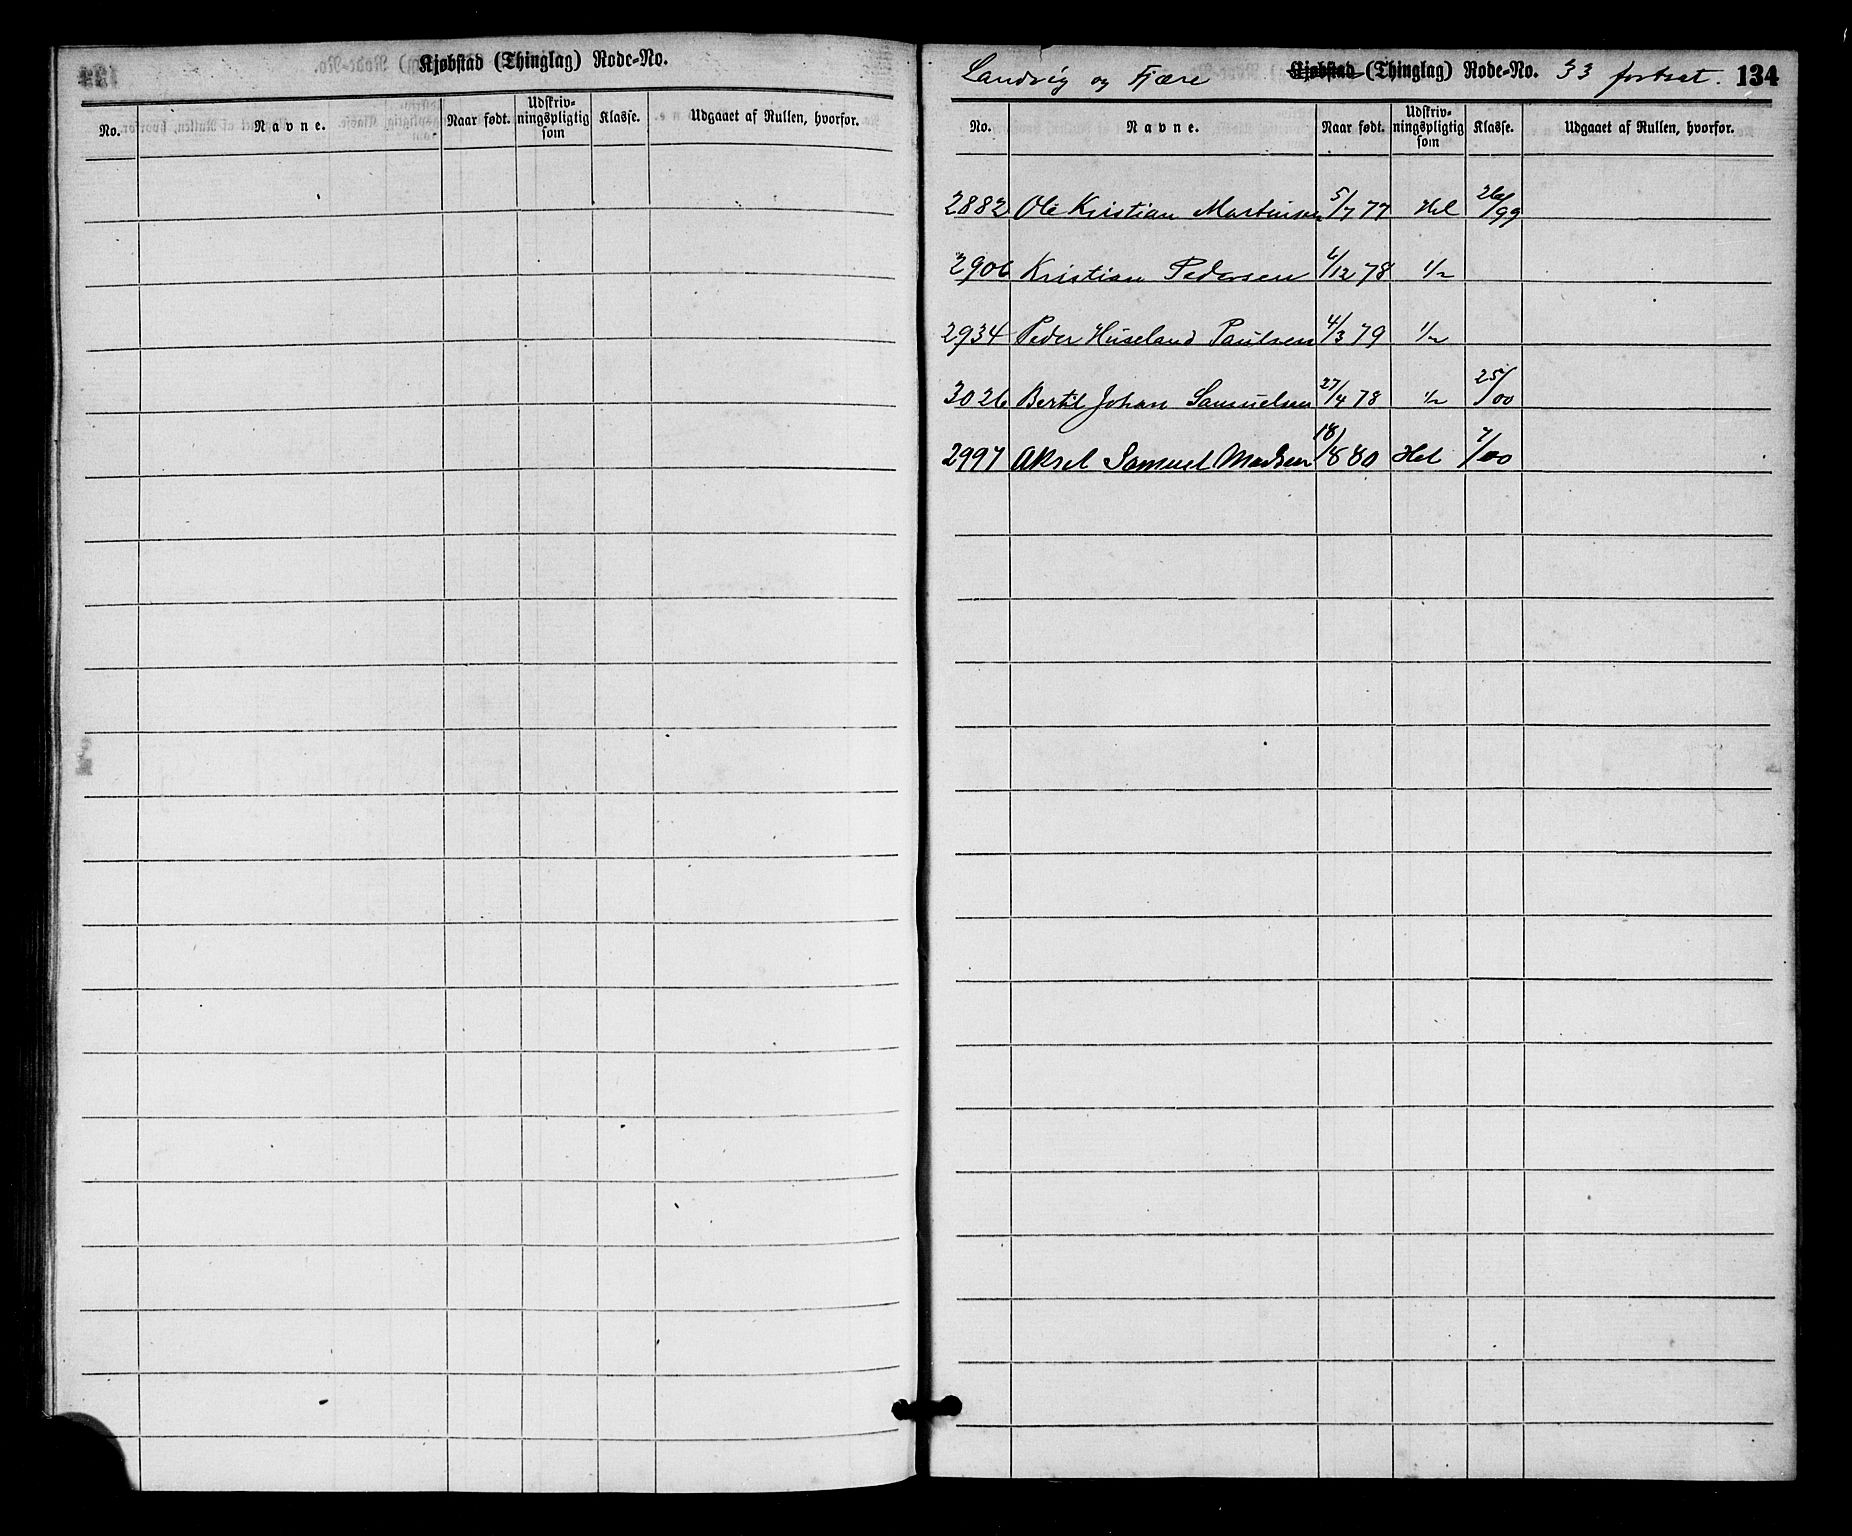 Kjøbstad (Thinglag) Rode-No.
No. Navne. Naar født. Udskriv-ningspligtig som Klasse. Udgaaet af Rullen, hvorfor.
Landvig og Fjære Kjøbstad (Thinglag) Rode-No. 33 fortsat. 134
No. Navne. Naar født. Udskriv-ningspligtig som Klasse. Udgaaet af Rullen, hvorfor.
2882 Ole Kristian Martinsen 5/7 77 Hel 26/99
2906 Kristian Pedersen /12 78 1/2
2934 Peder Huseland Paulsen 4/3 79 1/2
3026 Bertil Johan Samuelsen 27/4 78 1/2 25/00
2997 Aksel Samuel Madsen 18/8 80 Hel 7/00